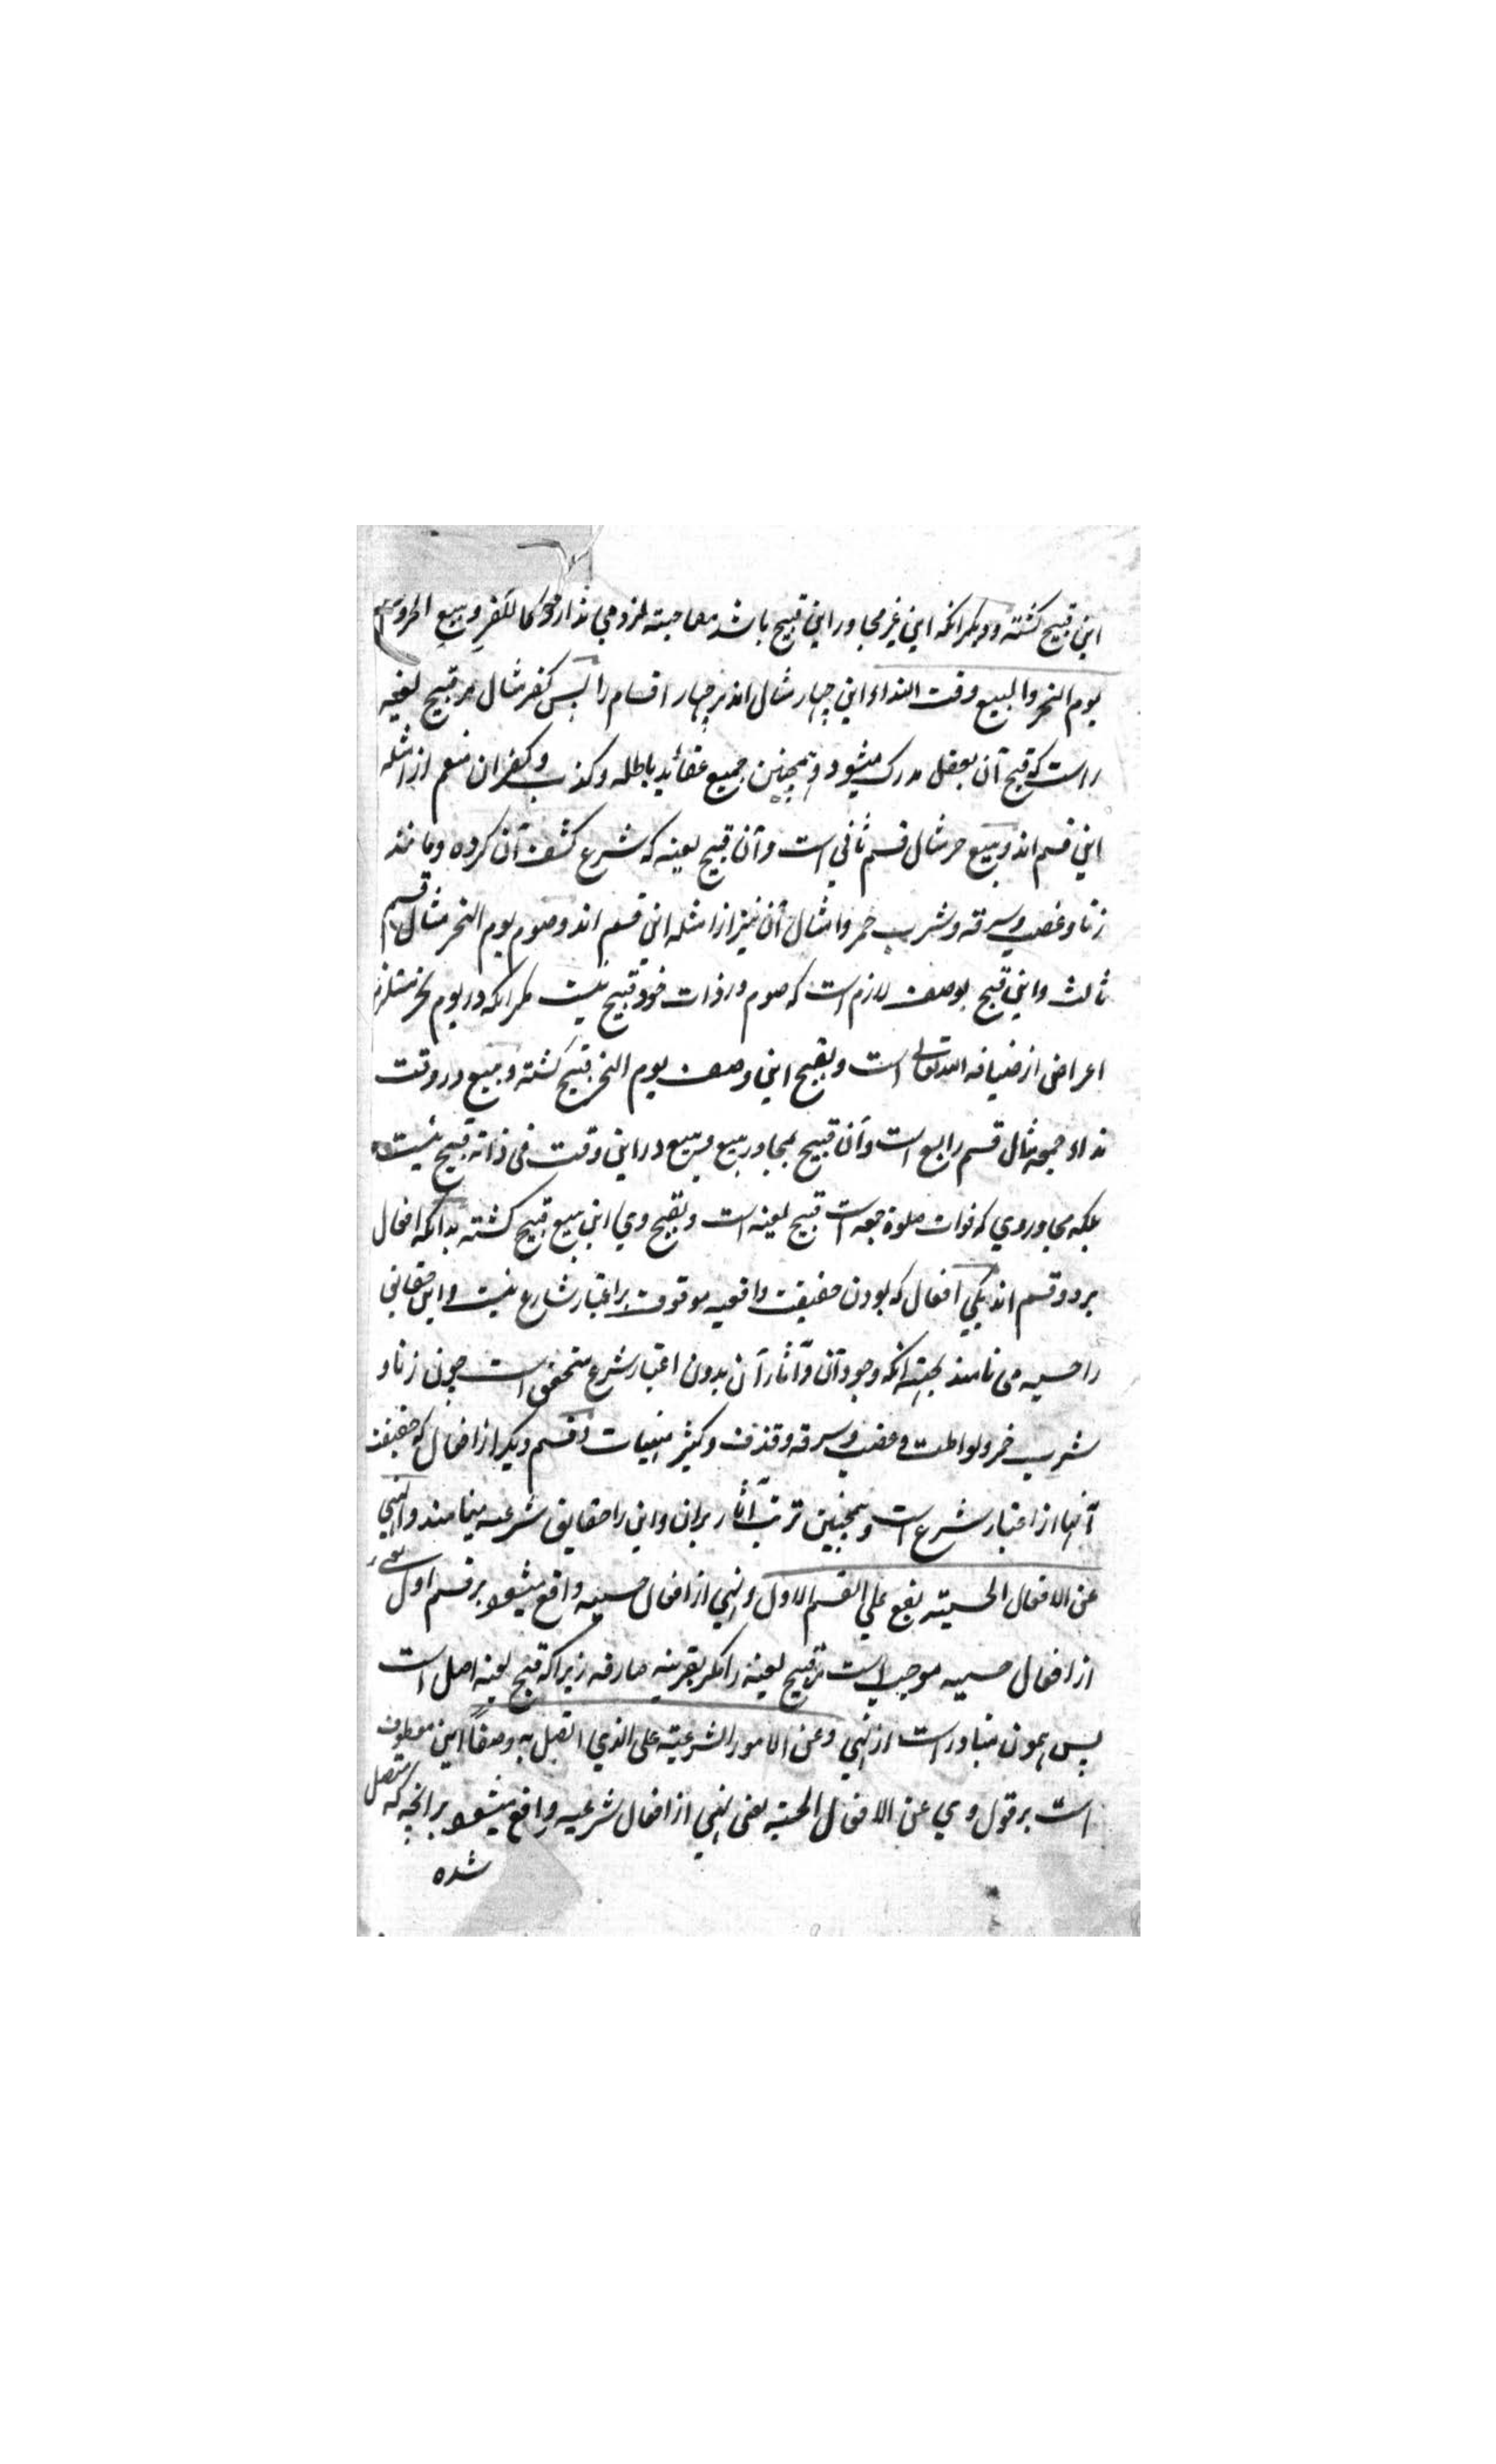 این قبیح گشته و دیگر آنکه این غیر مجاور این قبیح باشد مصاحبته لزومی ندارد کالکفر و بیع الحر و صوم
یوم النحر والبیع وقت النداء این چهار مثال اند بر چهار اقسام را پس کفر مثال مر قبیح لعینه
راست که قبح آن بعقل مدرک میشود و همچنین جمیع عقائد باطله و کذب و کفران منعم از امثله
این قسم اند و بیع حر مثال قسم ثانی است و آن قبیح لعینه که شرع کشف آن کرده و مانند
زنا و غصب و سرقه و شرب خمر و امثال آن نیز از امثله این قسم اند و صوم یوم النحر مثال قسم
ثالث و این قبیح بوصف لازم است که صوم در ذات خود قبیح نیست مگر آنکه در یوم نحر مستلزم
اعراض از ضیافه الله تعالی است و بقبح این وصف یوم النحر قبیح گشته و بیع در وقت
نداء جمعه مثال قسم رابع است و آن قبیح بمجاور بیع و بیع در این وقت فی ذاته قبیح نیست
بلکه مجاور وی که فوات صلوة جمعه است قبیح لعینه است و بقبح وی این بیع قبیح گشته بدانکه افعال
بر دو قسم اند یکی افعال که بودن حقیقت واقعیه موقوف بر اعتبار شارع نیست و این حقایق
را حسیه می نامند بجهته آنکه وجود آن و آثار آن بدون اعتبار شرع متحقق است چون زنا و
شرب خمر و لواطت و غصب و سرقه و قذف و کثیر منهیات و قسم دیگر از افعال که حقیقت
آنها از اعتبار شرع است و همچنین ترتب آثار بران و این را حقایق شرعیه مینامند والنهی
عن الافعال الحسیه یقع علی القسم الاول و نهی از افعال حسیه واقع میشود بر قسم اول یعنی
از افعال حسیه موجب است مر قبیح لعینه را مگر بقرینه صارفه زیراکه قبح لعینه اصل است
پس همون متبادر است از نهی وعن الامور الشرعیه علی الذی اتصل به وصفاً این معطوف
است بر قول وی عن الافعال الحسیه یعنی نهی از افعال شرعیه واقع میشود بر آنچه که متصل
شده